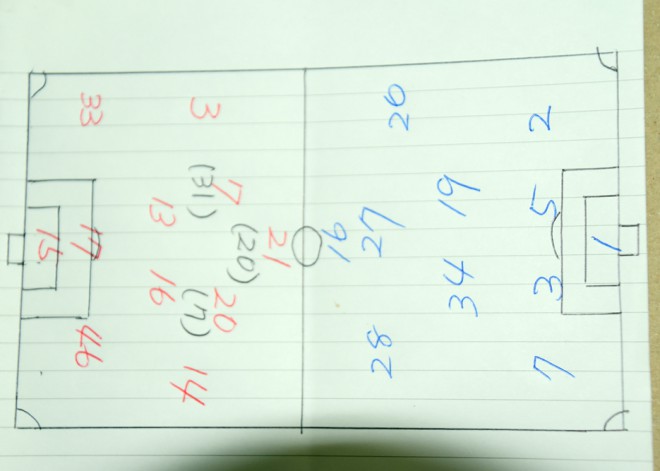 21
(20)
3
7
(31)
20
(7)
13
16
14
33
17
46
15
16
28
27
26
34
19
7
3
5
2
1